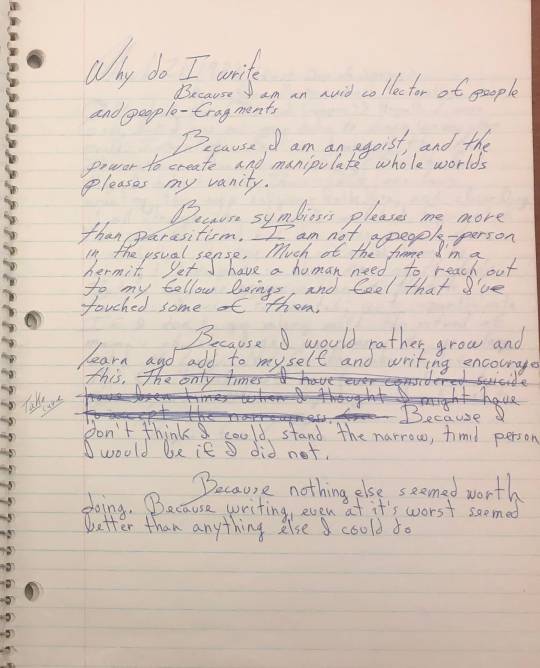 Why do I write
Because I am an avid collector of people
and people-fragments
Because I am an egoist, and the
power to create and manipulate whole worlds
pleases my vanity.
Because symbiosis pleases me more
than parasitism. I am not a people-person
in the usual sense. Much of the time I'm a
hermit. Yet I have a human need to reach out
to my fellow beings, and feel that I've
touched some of them.
Because I would rather grow and
learn and add to myself and writing encourages
this. The only times I have ever considered suicide
have been times when I thought I might have
Take care
to accept the narrowness. Because I
don't think I could, stand the narrow, timid person
I would be if I did not.
Because nothing else seemed worth
doing. Because writing, even at it's worst seemed
better than anything else I could do